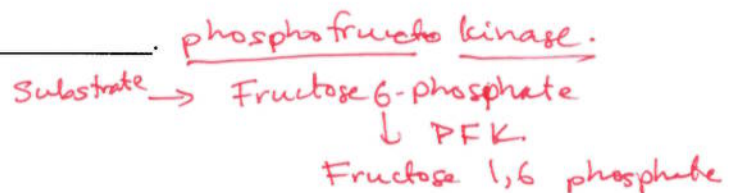 ________. phosphofructo kinase.
Substrate → Fructose 6-phosphate
↓ PFK.
Fructose 1,6 phosphate